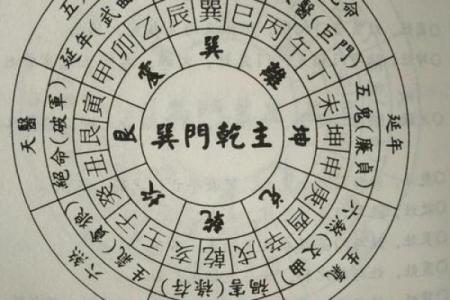 巽門乾主
巽
離
坤
兌
乾
坎
艮
震
辰
巽
巳
丙
午
丁
未
坤
申
庚
酉
辛
戌
乾
亥
壬
子
癸
丑
艮
寅
甲
卯
乙
醫(巨門)
五鬼(廉貞)
六煞(文曲)
禍害(祿存)
生氣(貪狼)
絕命(破軍)
延年(武曲)
命
延年
生氣
六煞
天醫
五